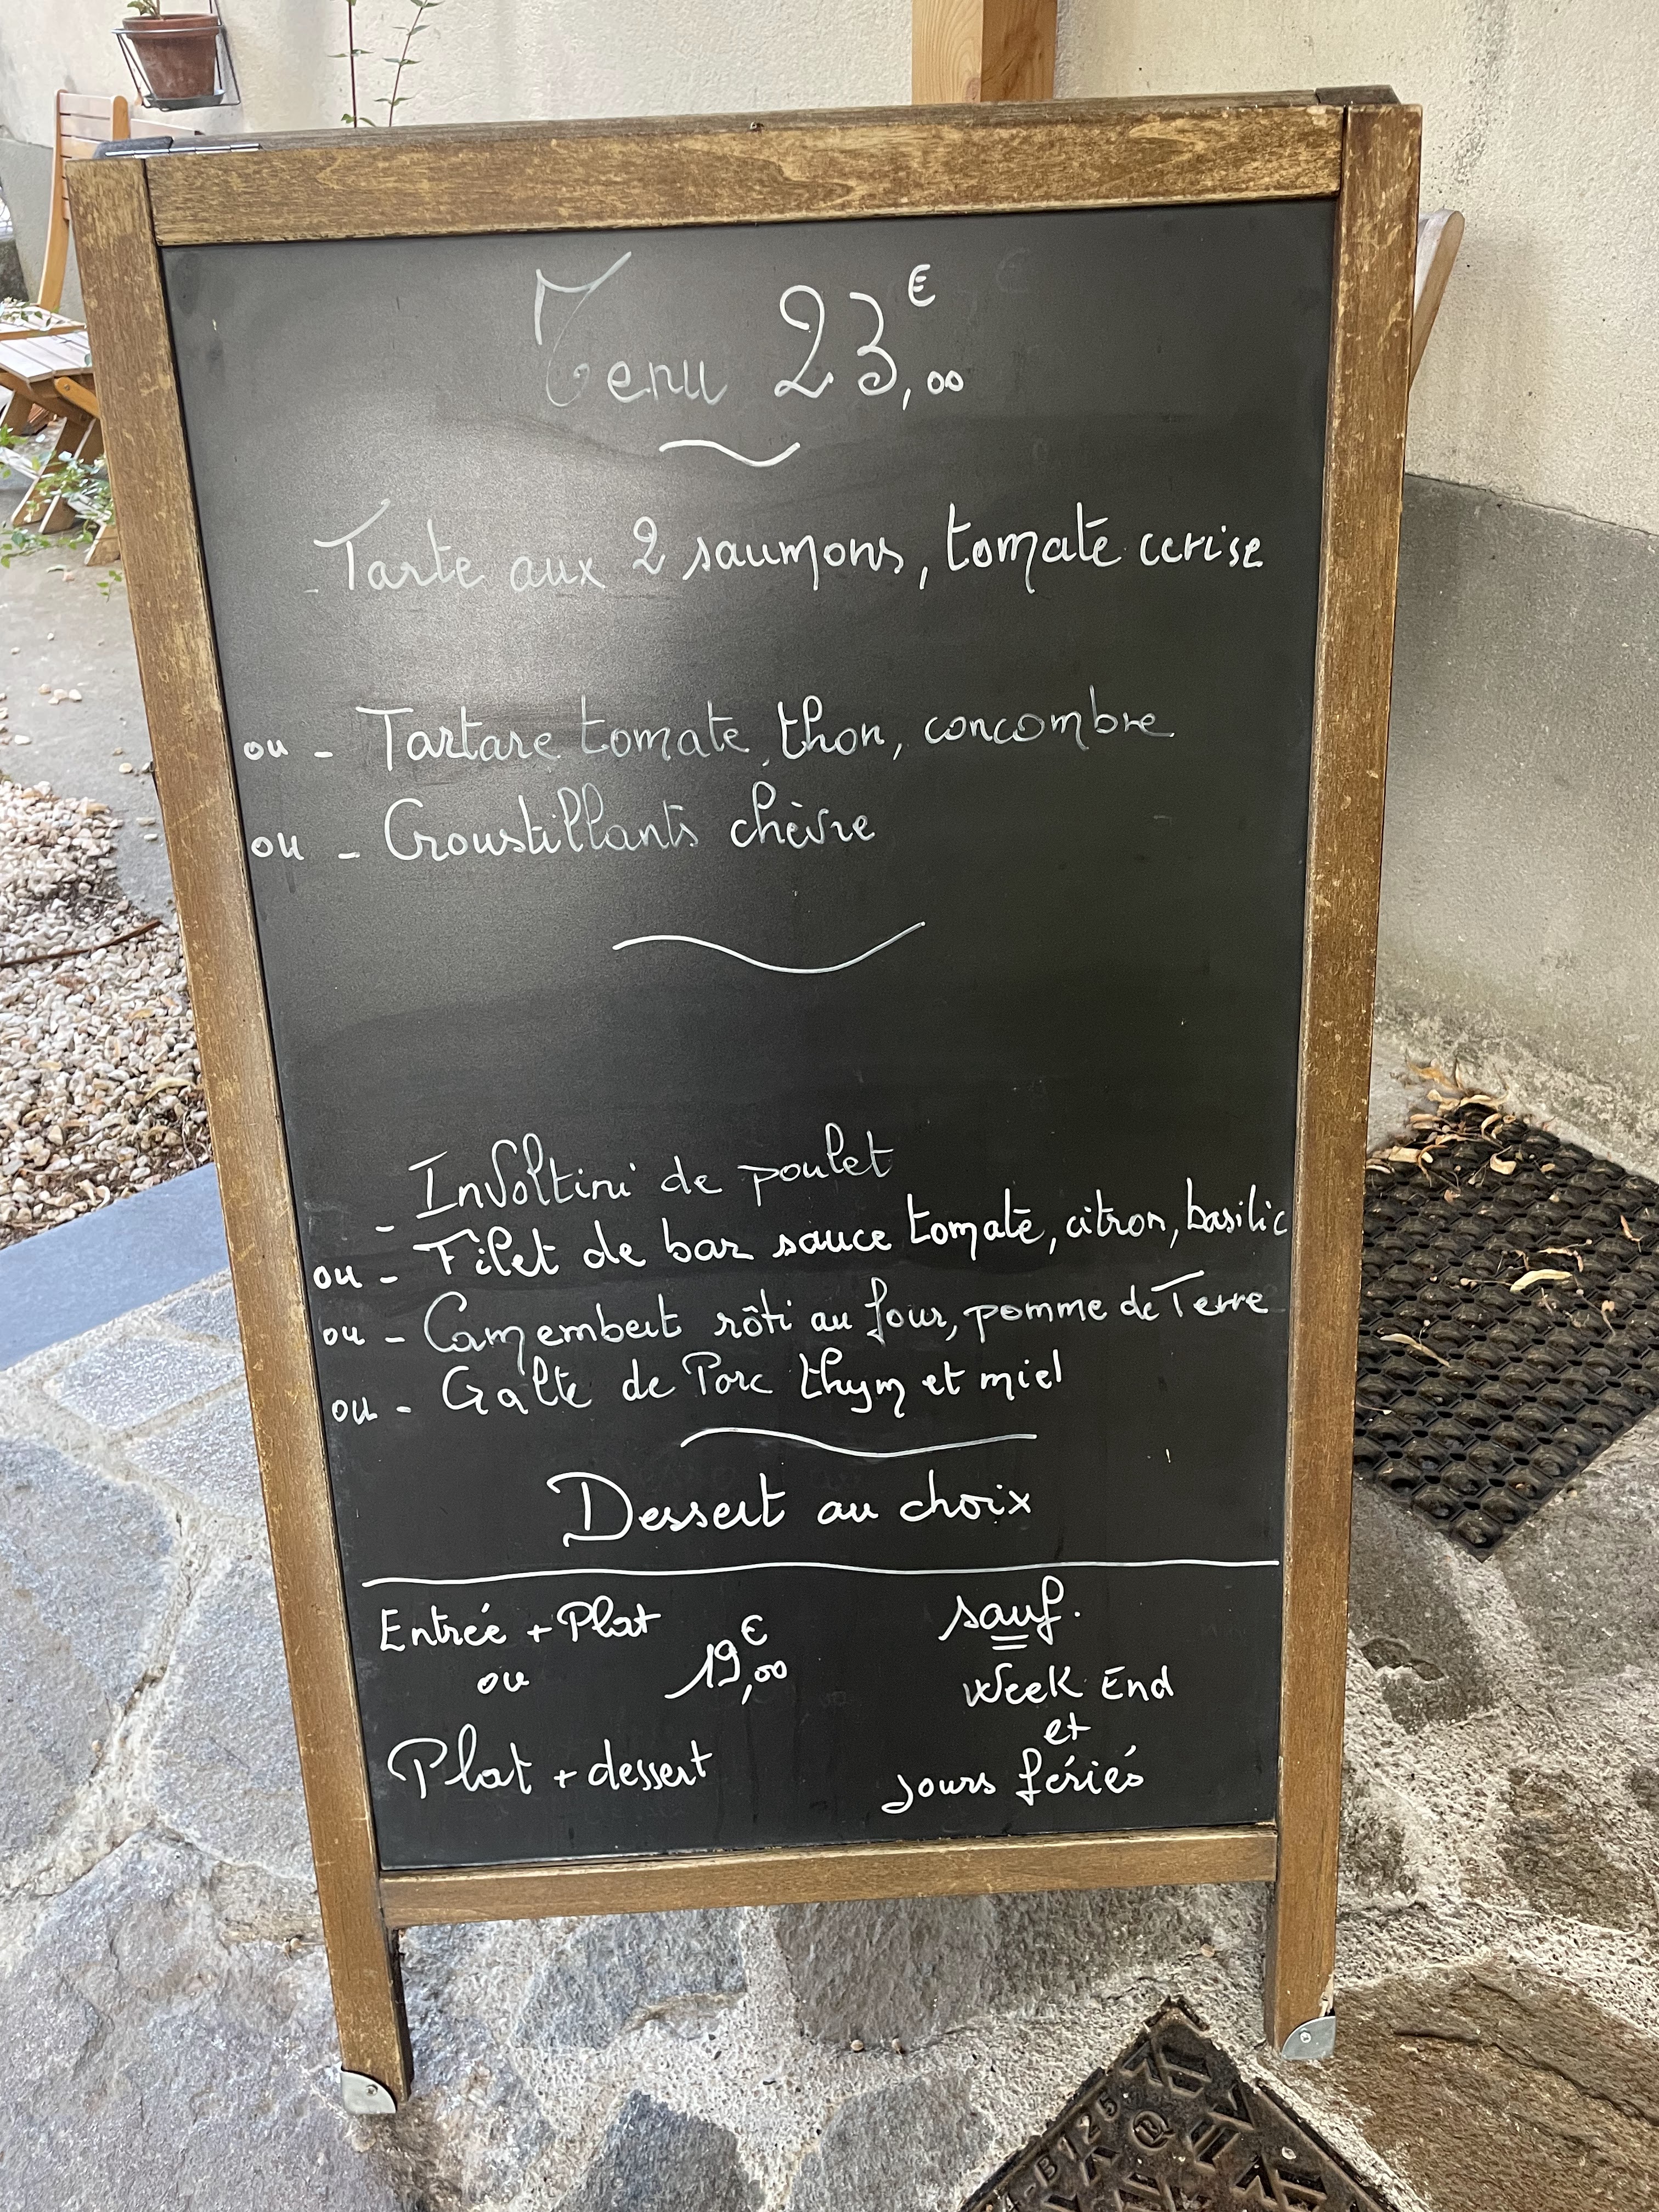 Menu 23,00€
- Tarte aux 2 saumons, tomate cerise
ou - Tartare tomate, thon, concombre
ou - Croustillants chèvre
- Involtini de poulet
ou - Filet de bar sauce tomate, citron, basilic
ou - Camembert rôti au four, pomme de Terre
ou - Galte de Porc thym et miel
Dessert au choix
Entrée + Plat
ou
19,00€
Plat + dessert
sauf.
Week End
et
jours fériés
B125